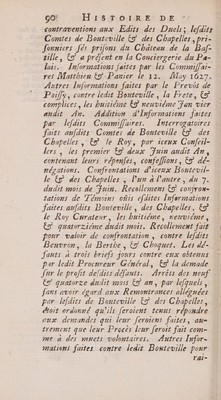 90 HISTOIRE DE
contraventions aux Edits des Duels; lesdits
Comtes de Bouteville & des Chapelles, pri-
sonniers ſés priſons du Château de la Baſ-
tille, & à préſent en la Conciergerie du Pa-
lais. Informations faites par les Commiſſai-
res Matthieu & Panier le 12. May 1627.
Autres Informations faites par le Prevôt de
Poiſſy, contre ledit Bouteville, la Frete, &
complices, les huitiéme & neuviéme Janvier
audit An. Addition d'Informations faites
par leſdits Commiſſaires. Interrogatoires
faits auſdits Comtes de Bouteville & des
Chapelles, & le Roy, par iceux Conſeil-
lers, les premier & deux Juin audit An,
contenant leurs réponſes, confeſſions, & dé-
négations. Confrontations d'iceux Boutevil-
le & des Chapelles, l'un à l'autre, du 7.
dudit mois de Juin. Recollemens & confron-
tations de Témoins oüis eſdites Informations
faites auſdits Bouteville, des Chapelles, &
le Roy Curateur, les huitiéme, neuviéme,
& quatorziéme dudit mois. Recollement fait
pour valoir de confrontation, contre leſdits
Beuvron, la Berthe, & Choquet. Les dé-
fauts à trois briefs jours contre eux obtenus
par ledit Procureur Général, & la demande
ſur le profit deſdits défauts. Arrêts des neuf
& quatorze dudit mois & an, par leſquels,
ſans avoir égard aux Remontrances alléguées
par leſdits de Bouteville & des Chapelles,
étoit ordonné qu'ils ſeroient tenus répondre
aux demandes qui leur ſeroient faites, au-
trement que leur Procès leur ſeroit fait com-
me à des muets volontaires. Autres Infor-
mations faites contre ledit Bouteville pour
rai-